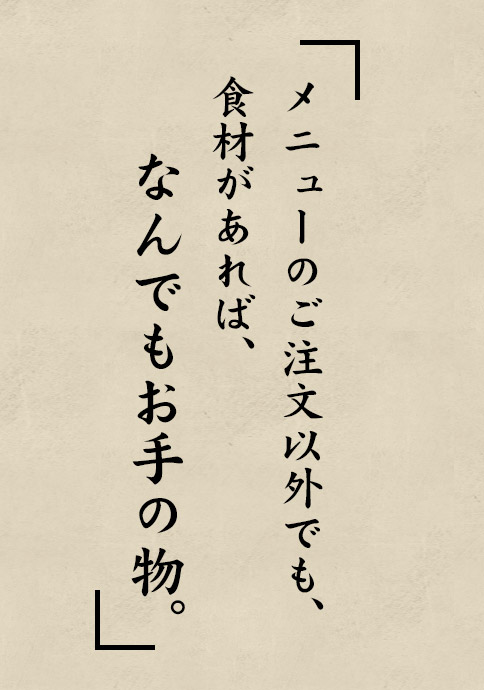 メニューのご注文以外でも、
食材があれば、
なんでもお手の物。